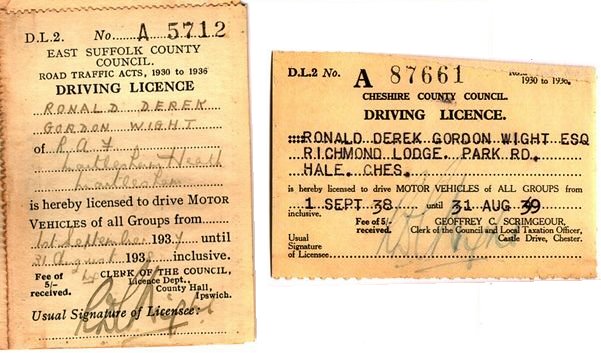 D.L.2 No. A 5712
EAST SUFFOLK COUNTY
COUNCIL.
ROAD TRAFFIC ACTS, 1930 to 1936
DRIVING LICENCE
RONALD DEREK
GORDON WIGHT
of R A F
Martlesham Heath
Martlesham
is hereby licensed to drive MOTOR
VEHICLES of all Groups from
1st September 1937 until
31 August 1938 inclusive.
Fee of
5/-
received.
CLERK OF THE COUNCIL,
Licence Dept.,
County Hall,
Ipswich.
Usual Signature of Licensee:
D.L.2 No. A 87661
1930 to 1936.
CHESHIRE COUNTY COUNCIL.
DRIVING LICENCE.
RONALD DEREK GORDON WIGHT ESQ
RICHMOND LODGE. PARK RD.
HALE. CHES.
is hereby licensed to drive MOTOR VEHICLES of ALL GROUPS from
1 SEPT 38 until 31 AUG 39
inclusive.
Fee of 5/-
received.
GEOFFREY C. SCRIMGEOUR,
Clerk of the Council and Local Taxation Officer,
Castle Drive, Chester.
Usual
Signature
of Licensee